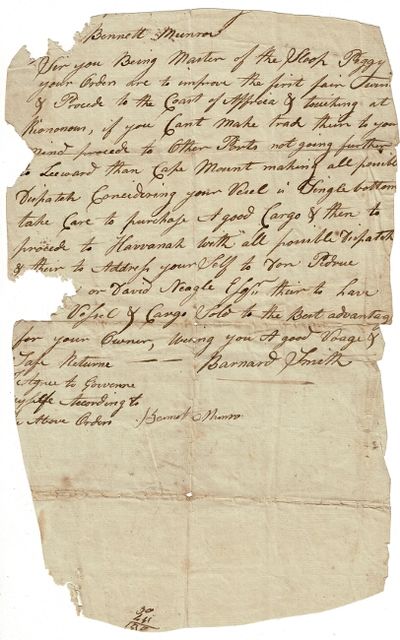 Bennett Munro
Sir you Being Master of the Sloop Peggy
your Orders are to improve the first fair
& Procede to the Coast of Affrica & touching at
if you Cant make trad their to your
mind proceed to Other Ports not going further
to Leeward than Cape Mount making all possible
Dispatch Concidering your Vesel is Single bottom
take Care to purchase A good Cargo & then to
procede to Havvanah with all possible Dispatch
& their to Address your Self to Don
or David Neagle Esqr. their to have
Vessel & Cargo Sold to the Best advantag
for your Owner, you A good Voage &
Safe Returne
Barnard Smith
Agree to Govenne
my self According to
Above Orders
Bennet Munro